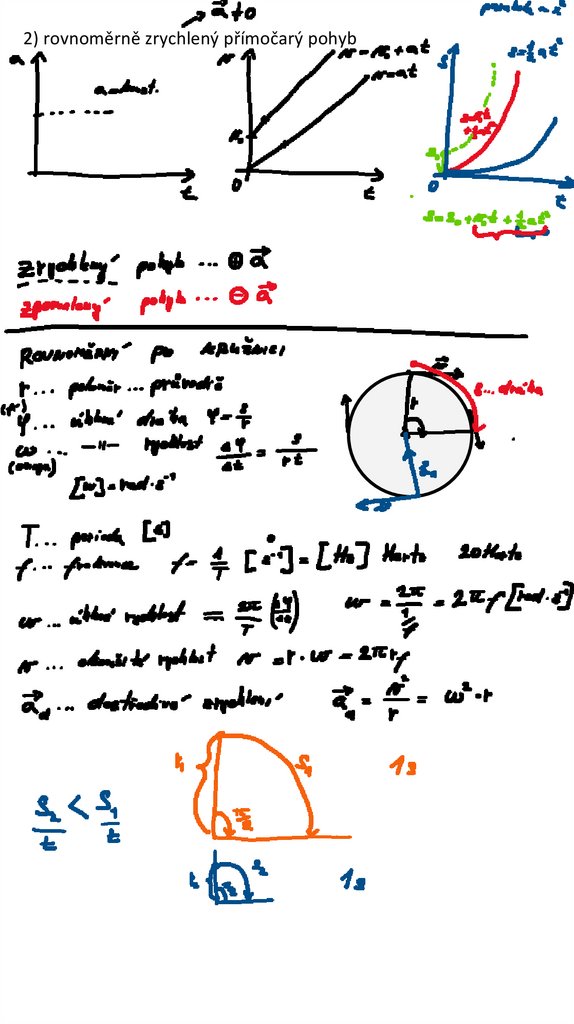 → a⃗ ≠ 0
parabola ~ x²
2) rovnoměrně zrychlený přímočarý pohyb
a
a=konst.
t
v
v = v₀ + at
v = at
v₀
0
t
s
s = ½at²
s=v₀t
+½at²
s₀
0
t
s = s₀ + v₀t + ½at²
zrychlený pohyb ... ⊕ a⃗
zpomalený pohyb ... ⊖ a⃗
ROVNOMĚRNÝ PO KRUŽNICI
r ... poloměr ... průvodič
(fí)
φ ... úhlová dráha φ = s/r
ω ... —||— rychlost Δφ/Δt = s/rt
(omega)
[ω] = rad·s⁻¹
r
s... dráha
T... perioda [s]
f... frekvence f = 1/T [s⁻¹] = [Hz] Hertz 20 Hertz
ω ... úhlová rychlost = 2π/T (Δφ/Δt) ω = 2π/(1/f) = 2πf [rad·s⁻¹]
v ... okamžitá rychlost v = r·ω = 2πrf
a⃗d ... dostředivé zrychlení a⃗d = v²/r = ω²·r
r₁
s₁
π/2
1s
s₂/t < s₁/t
s₂
1s